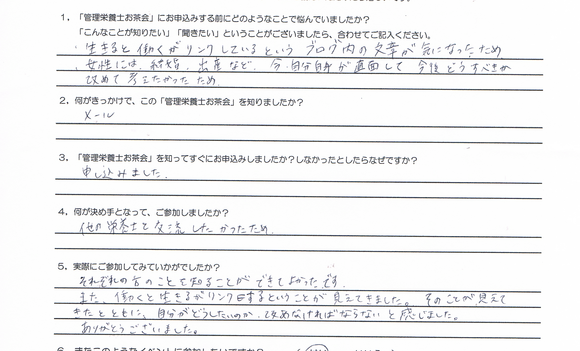 1．「管理栄養士お茶会」にお申込みする前にどのようなことで悩んでいましたか？
「こんなことが知りたい」「聞きたい」ということがございましたら、合わせてご記入ください。
・生きると働くがリンクしているという ブログ内の文章が気になったため
・女性には、結婚、出産など、今、自分自身が直面して 今後どうすべきか
改めて考えたかったため
2．何がきっかけで、この「管理栄養士お茶会」を知りましたか？
メール
3．「管理栄養士お茶会」を知ってすぐにお申込みしましたか？しなかったとしたらなぜですか？
申し込みました。
4．何が決め手となって、ご参加しましたか？
他の栄養士と交流したかったため。
5．実際にご参加してみていかがでしたか？
それぞれの方のことを知ることができてよかったです。
また、働くと生きるがリンクするということが見えてきました。そのことが見えて
きたとともに、自分がどうしたいのか、改めなければならないと感じました。
ありがとうございました。
6．またこのようなイベントに参加したいですか？